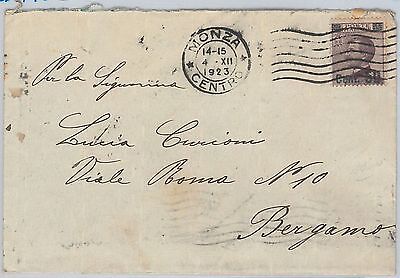 MONZA
14-15
4 XII
1923
CENTRO
Cent. 50
Per la Signorina
Lucia Curioni
Viale Roma N 10
Bergamo